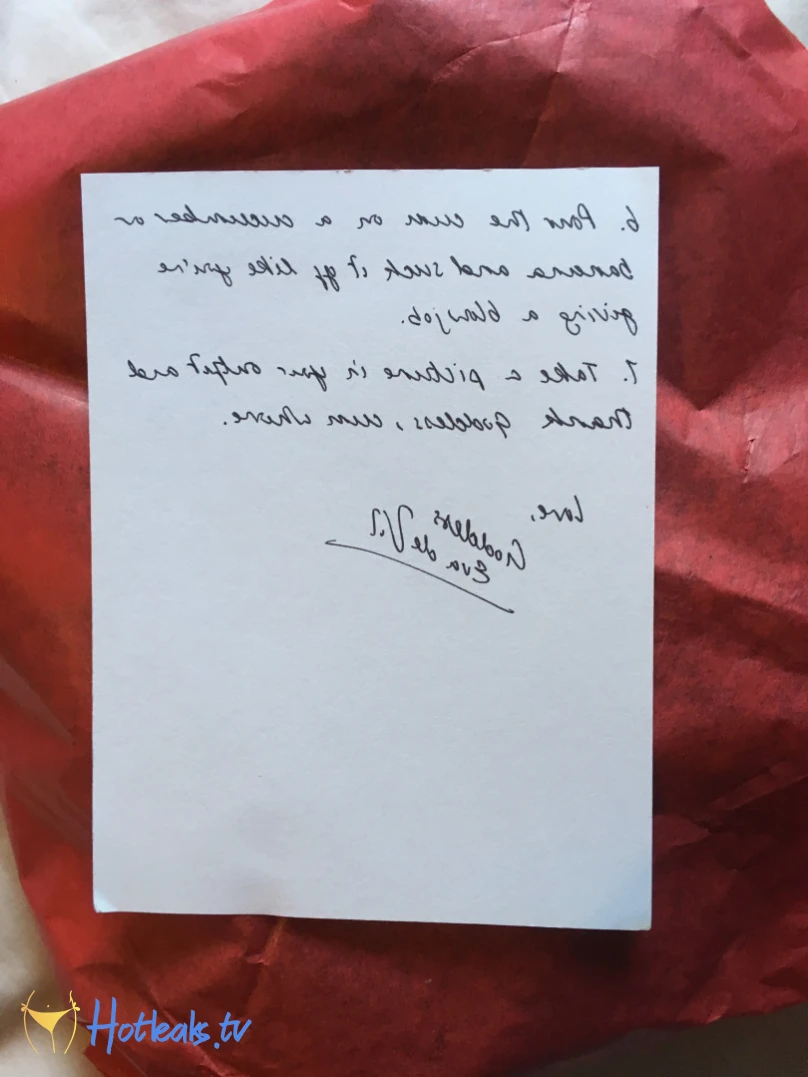 6. Pour the cum on a cucumber or
banana and suck it off like you're
giving a blowjob.
7. Take a picture in your outfit and
thank goddess, cum whore.
Love,
Goddess
Eva de Vil
Hotleaks.tv